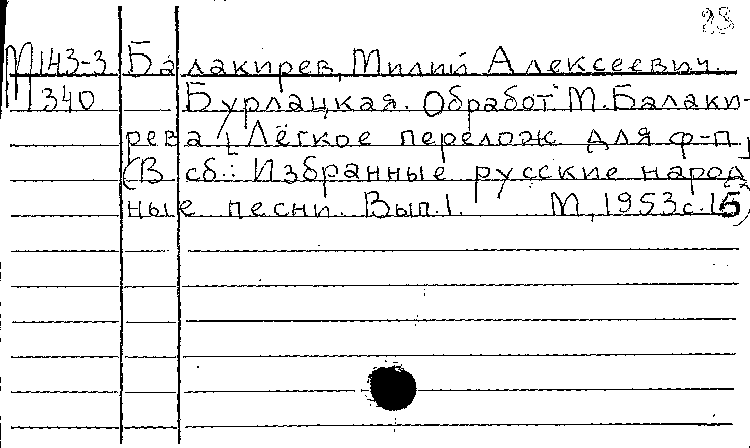 28
М143-3 Балакирев, Милий Алексеевич.
М340 Бурлацкая. Обработ. М. Балаки-
рева [Лёгкое перелож для ф-п]
(В сб.: Избранные русские народ
ные песни. Вып. 1. М., 1953 с. 15)